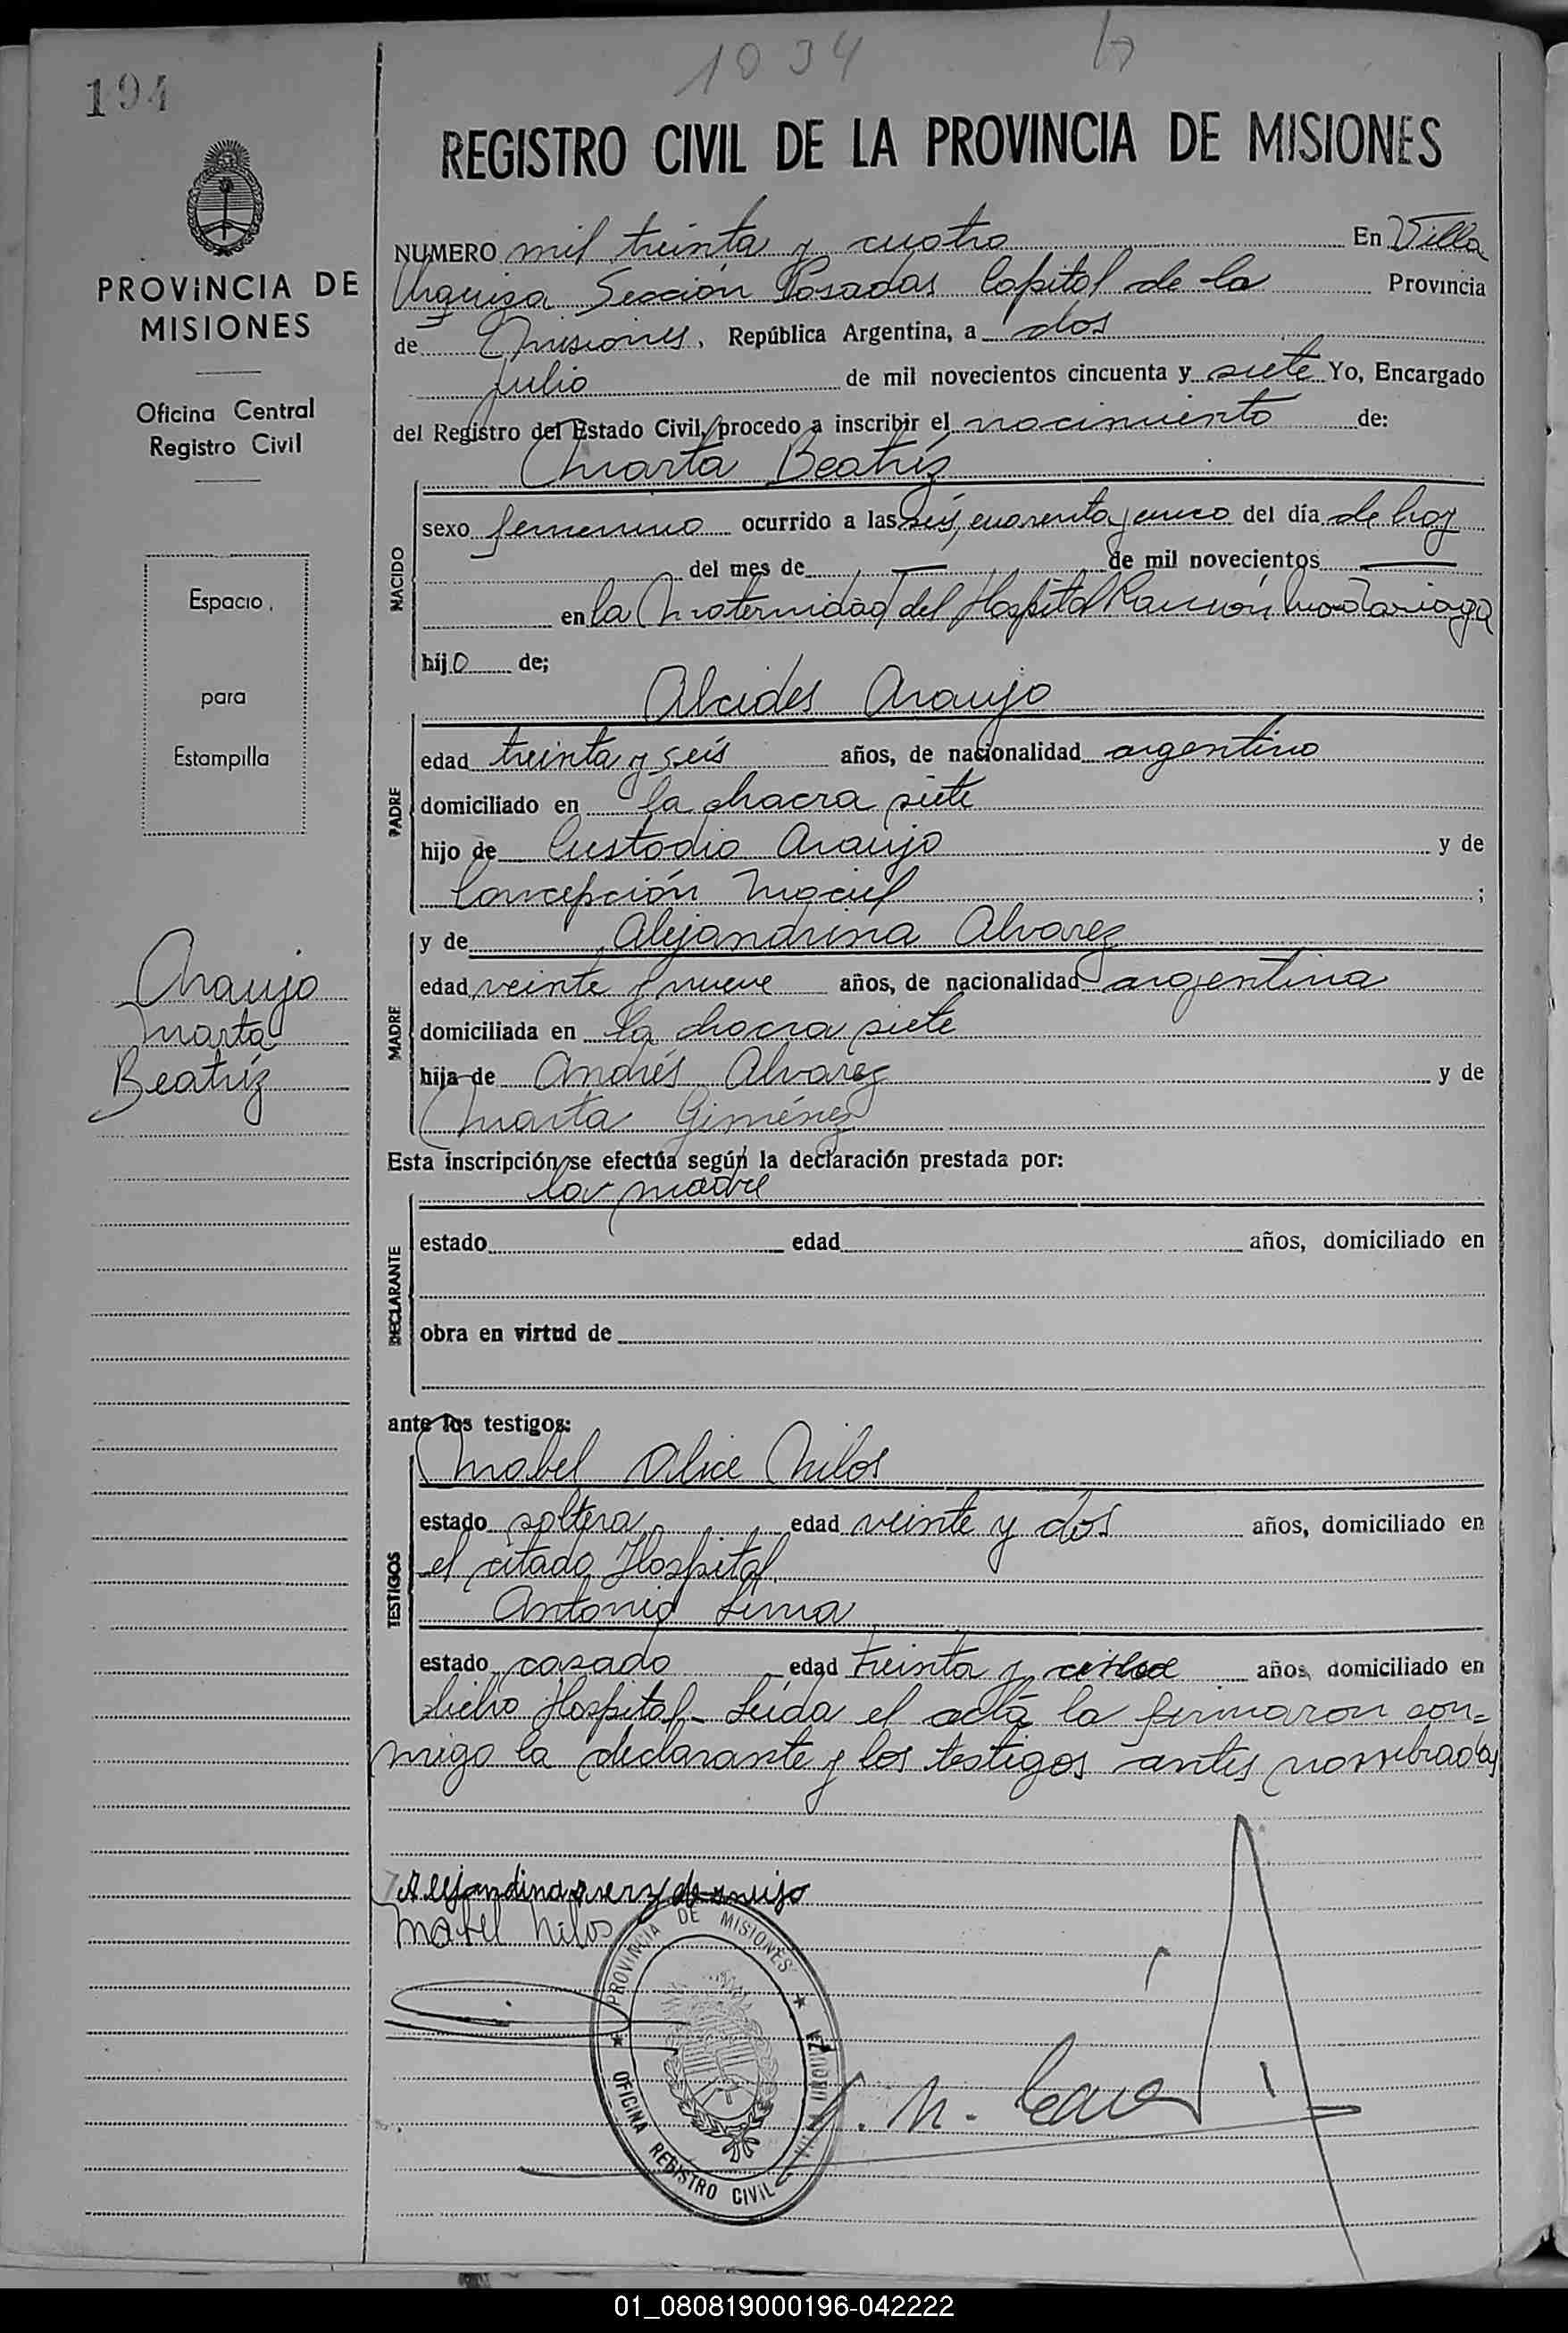 1034
194
REGISTRO CIVIL DE LA PROVINCIA DE MISIONES
PROVINCIA DE
MISIONES
Oficina Central
Registro Civil
Espacio
para
Estampilla
Araujo
Marta
Beatríz
NUMERO mil treinta y cuatro En Villa
Urquiza Sección Posadas Capital de la Provincia
de Misiones, República Argentina, a dos
Julio de mil novecientos cincuenta y siete Yo, Encargado
del Registro del Estado Civil, procedo a inscribir el nacimiento de:
Marta Beatríz
NACIDO
sexo femenino ocurrido a las seis, cuarenta y cinco del día de hoy
del mes de — de mil novecientos —
en la Maternidad del Hospital Ramón Madariaga
hijo de;
Alcides Araujo
PADRE
edad treinta y seis años, de nacionalidad argentino
domiciliado en la chacra siete
hijo de Custodio Araujo y de
Concepción Maciel ;
y de Alejandrina Alvarez
MADRE
edad veinte y nueve años, de nacionalidad argentina
domiciliada en la chacra siete
hija de Andrés Alvarez y de
Marta Giménez
Esta inscripción se efectúa según la declaración prestada por:
la madre
DECLARANTE
estado edad años, domiciliado en
obra en virtud de
ante los testigos:
Mabel Alice Nilos
TESTIGOS
estado soltera edad veinte y dos años, domiciliado en
el citado Hospital.
Antonio Lima
estado casado edad treinta y años, domiciliado en
dicho Hospital- Leída el acta la firmaron con=
migo la declarante y los testigos antes nombrados
Mabel Nilos
PROVINCIA DE MISIONES
OFICINA REGISTRO CIVIL
01_080819000196-042222